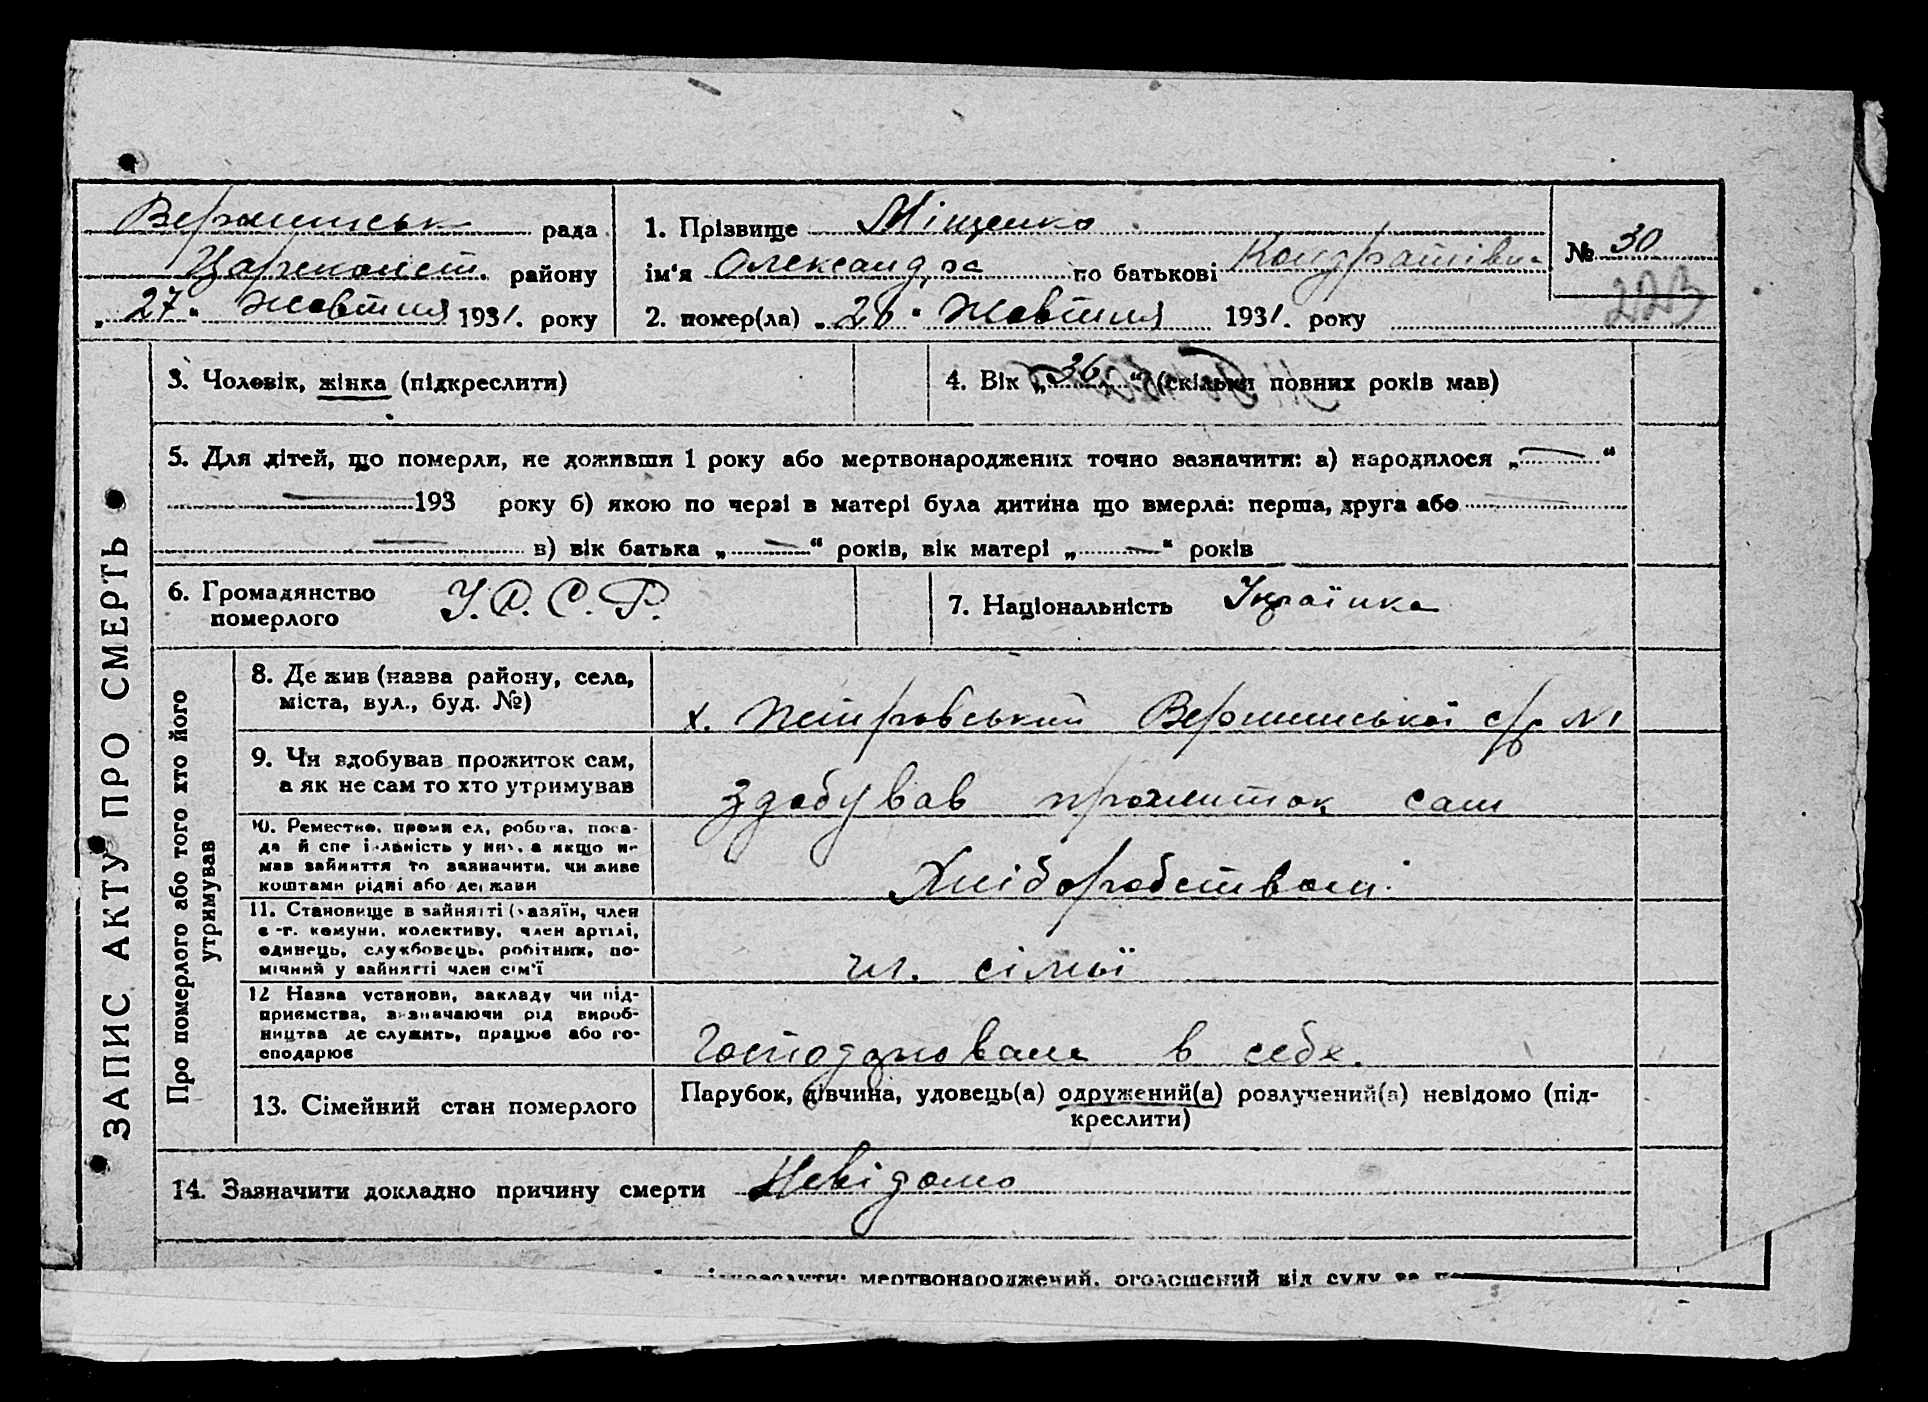 Вершинськ рада
Царекост. району
„27" Жовтня 1931. року
1. Прізвище Міщенко
ім'я Олександра по батькові Кондратівна
2. помер(ла) „26" Жовтня 1931. року
№ 30
223
3. Чоловік, жінка (підкреслити)
4. Вік „36" (скільки повних років мав)
5. Для дітей, що померли, не доживши 1 року або мертвонароджених точно зазначити: а) народилося „—"
— 193 року б) якою по черзі в матері була дитина що вмерла: перша, друга або —
— в) вік батька „—" років, вік матері „—" років
6. Громадянство
померлого
У.С.С.Р.
7. Національність Українка
ЗАПИС АКТУ ПРО СМЕРТЬ
Про померлого або того хто його
утримував
8. Де жив (назва району, села,
міста, вул., буд. №)
х. Петровський Вершинської с/р №1
9. Чи здобував прожиток сам,
а як не сам то хто утримував
здобував прожиток сам
10. Ремество, промисел, робота, поса-
да й спеціяльність у них, а якщо не
мав зайняття то зазначити, чи живе
коштами рідні або держави
Хліборобством
11. Становище в зайнятті (хазяїн, член
с.-г. комуни, колективу, член артілі,
одинець, службовець, робітник, по-
мічний у зайнятті член сім'ї
чл. сімьї
12 Назва установи, закладу чи під-
приємства, зазначаючи рід вироб-
ництва де служить, працює або го-
сподарює
Господарювала в себе.
13. Сімейний стан померлого
Парубок, дівчина, удовець(а) одружений(а) розлучений(а) невідомо (під-
креслити)
14. Зазначити докладно причину смерти Невідомо
мертвонароджений, оголошений від суду за